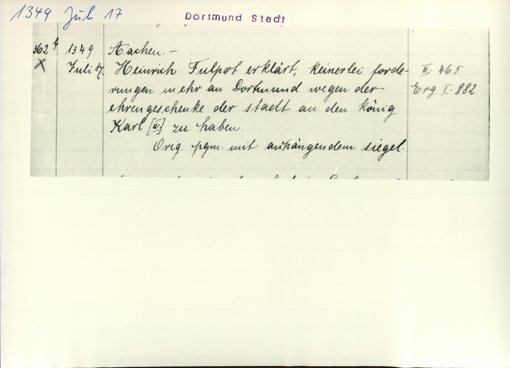 1349 Juli 17
Dortmund Stadt
362 b 1349 Aachen.-
X Juli 17. Heinrich Fulpot erklärt, keinerlei forde- II. 465
rungen mehr an Dortmund wegen der Erg I. 882
ehrengeschenke der stadt an den könig
Karl [IV] zu haben.
Orig. pgm. mit anhängendem siegel.